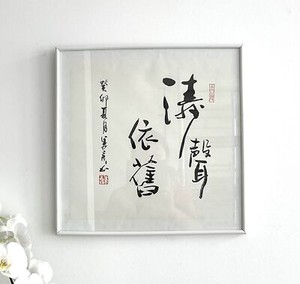 濤聲
依舊
癸卯夏月